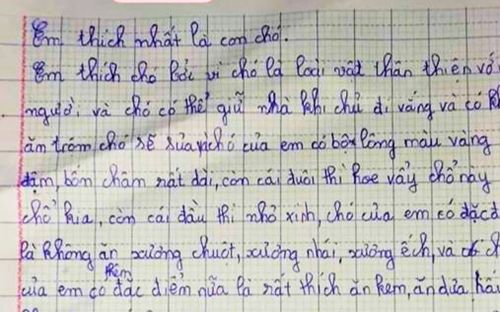 Em thích nhất là con chó.
Em thích chó bởi vì chó là loài vật thân thiện vớ
người và chó có thể giữ nhà khi chủ đi vắng và có k
ăn trộm chó sẽ sủa, chó của em có bộ lông màu vàng
đậm, bốn chân rất dài, còn cái đuôi thì hoe vẩy chổ này
chổ kia, còn cái đầu thì nhỏ xinh, chó của em có đặc đ
là không ăn xương chuột, xương nhái, xương ếch, và
của em có thêm đặc điểm nữa là rất thích ăn kem, ăn dưa hấu